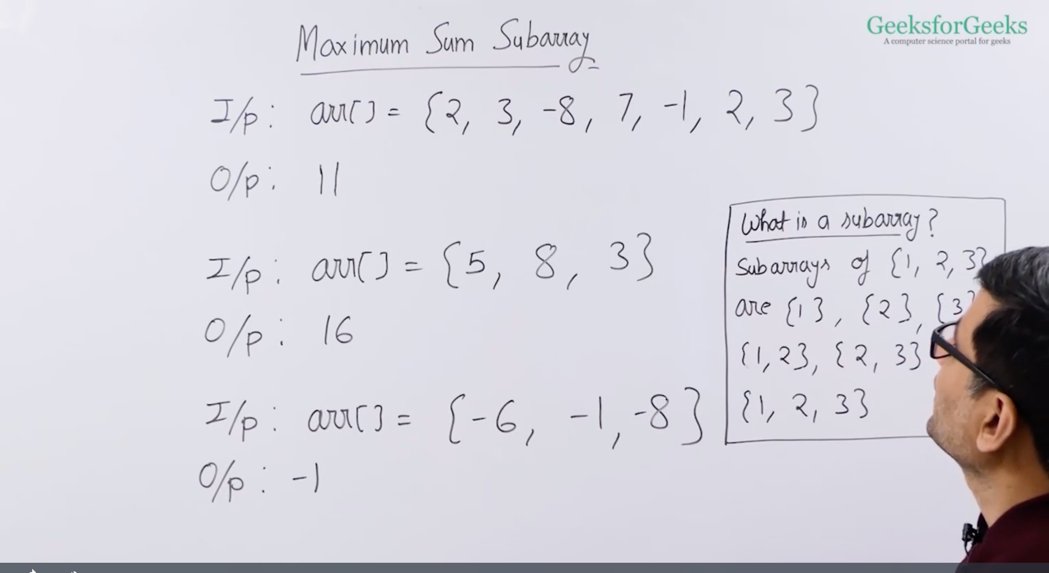 GeeksforGeeks
A computer science portal for geeks
Maximum Sum Subarray
I/p: arr[] = {2, 3, -8, 7, -1, 2, 3}
O/p: 11
I/p: arr[] = {5, 8, 3}
O/p: 16
I/p: arr[] = {-6, -1, -8}
O/p: -1
What is a subarray?
Subarrays of {1, 2, 3}
are {1}, {2}, {3}
{1,2}, {2, 3}
{1, 2, 3}